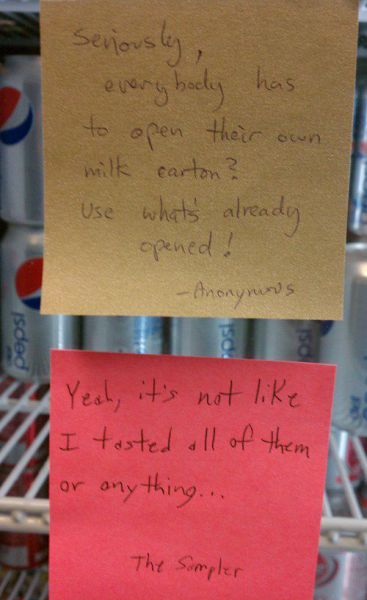 Seriously,
everybody has
to open their own
milk carton?
Use what's already
opened!
-Anonymous
pepsi
pepsi
pepsi
Yeah, it's not like
I tasted all of them
or anything...
The Sampler